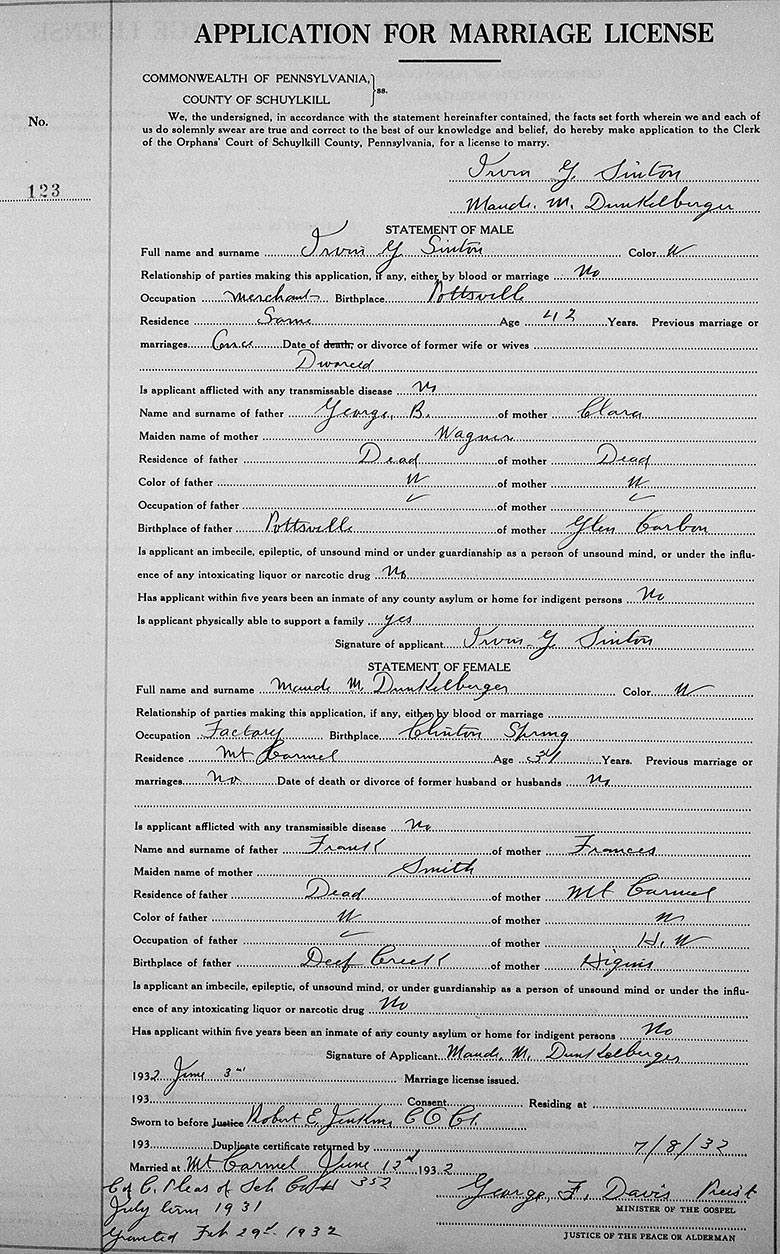 APPLICATION FOR MARRIAGE LICENSE
COMMONWEALTH OF PENNSYLVANIA, } ss.
COUNTY OF SCHUYLKILL
No.
123
We, the undersigned, in accordance with the statement hereinafter contained, the facts set forth wherein we and each of
us do solemnly swear are true and correct to the best of our knowledge and belief, do hereby make application to the Clerk
of the Orphans' Court of Schuylkill County, Pennsylvania, for a license to marry.
Irvin G. Sinton
Maude. M. Dunkelberger
STATEMENT OF MALE
Full name and surname Irvin G Sinton Color W
Relationship of parties making this application, if any, either by blood or marriage No
Occupation Merchant Birthplace Pottsville
Residence Same Age 42 Years. Previous marriage or
marriages Once Date of death, or divorce of former wife or wives
Divorced
Is applicant afflicted with any transmissable disease No
Name and surname of father George, B. of mother Clara
Maiden name of mother Wagner
Residence of father Dead of mother Dead
Color of father W of mother W
Occupation of father ✓ of mother ✓
Birthplace of father Pottsville of mother Glen Carbon
Is applicant an imbecile, epileptic, of unsound mind or under guardianship as a person of unsound mind, or under the influ-
ence of any intoxicating liquor or narcotic drug No
Has applicant within five years been an inmate of any county asylum or home for indigent persons No
Is applicant physically able to support a family yes
Signature of applicant Irvin G. Sinton
STATEMENT OF FEMALE
Full name and surname Maude M. Dunkelberger Color W
Relationship of parties making this application, if any, either by blood or marriage
Occupation Factory Birthplace Clinton Spring
Residence Mt Carmel Age Years. Previous marriage or
marriages No Date of death or divorce of former husband or husbands No
Is applicant afflicted with any transmissible disease No
Name and surname of father Frank of mother Frances
Maiden name of mother Smith
Residence of father Dead of mother Mt Carmel
Color of father W of mother W
Occupation of father ✓ of mother H. W
Birthplace of father Deep Creek of mother Higins
Is applicant an imbecile, epileptic, of unsound mind, or under guardianship as a person of unsound mind or under the influ-
ence of any intoxicating liquor or narcotic drug No
Has applicant within five years been an inmate of any county asylum or home for indigent persons No
Signature of Applicant Maude. M. Dunkelberger
1932 June 3rd Marriage license issued.
193 Consent Residing at
Sworn to before Justice Robert E. Jenkins C O Ct.
193 Duplicate certificate returned by 7/8/32
Married at Mt Carmel June 12th 1932
C of C. Pleas of Sch Co # 352
July term 1931
Granted Feb 29th 1932
George, F. Davis Priest
MINISTER OF THE GOSPEL
JUSTICE OF THE PEACE OR ALDERMAN